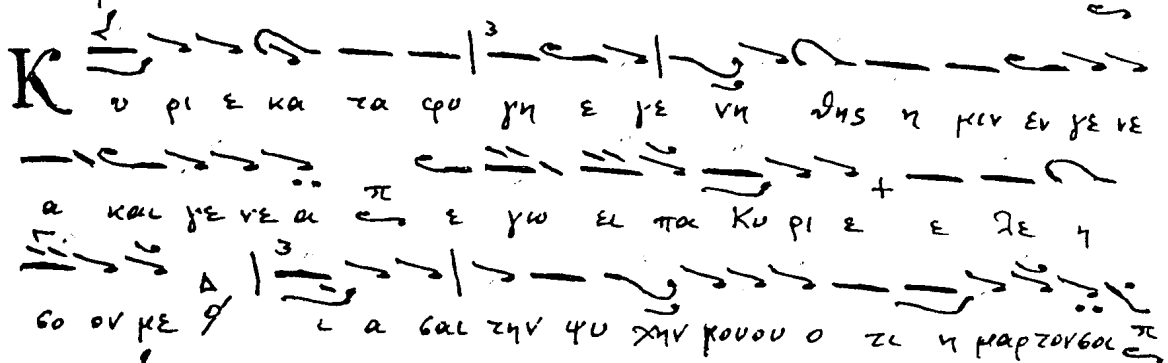 Κ υ ρι ε κα τα φυ γη ε γε νη θης η μιν εν γε νε
α και γε νε α π ε γω ει πα Κυ ρι ε ε λε η
σο ον με Δ ι α σαι την ψυ χην μουου ο τι η μαρτονσοι π